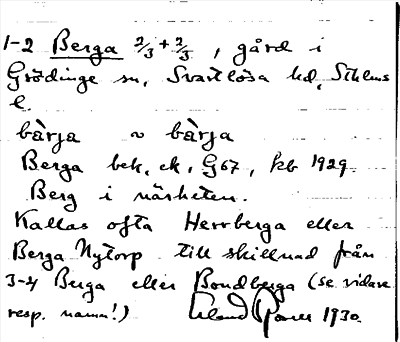 1-2 Berga 2/3 + 2/3, gård i
Grödinge sn, Svartlösa hd, Sthlms
l.
bàrja ~ bàrja
Berga bek, ek, G67, kb 1929.
Berg i närheten.
Kallas ofta Herrberga eller
Berga Nytorp till skillnad från
3-4 Berga eller Bondberga (se vidare
resp. namn!) 1930.